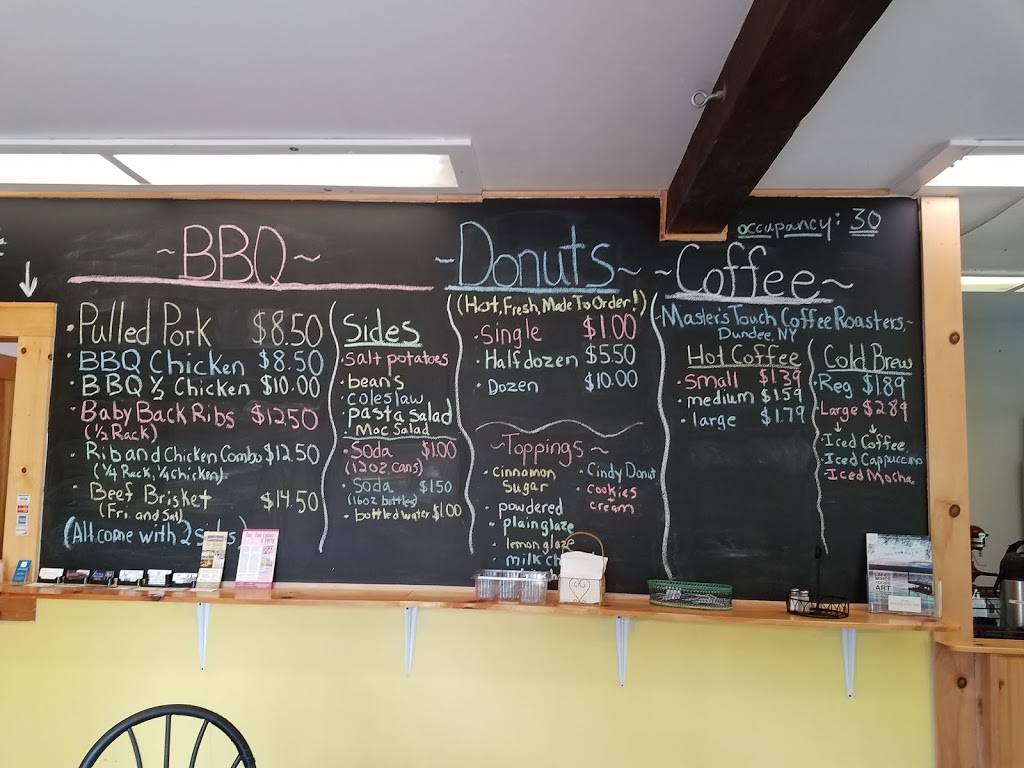 occupancy: 30
~BBQ~
• Pulled Pork $8.50
• BBQ Chicken $8.50
• BBQ ½ Chicken $10.00
• Baby Back Ribs $12.50
(½ Rack)
• Rib and Chicken Combo $12.50
(¼ Rack, ¼ Chicken)
• Beef Brisket $14.50
(Fri and Sat)
(All come with 2
Sides
• Salt potatoes
• beans
• coleslaw
• pasta salad
• Mac Salad
• Soda $1.00
(12oz cans)
• Soda $1.50
(16oz bottled)
• bottled water $1.00
~Donuts~
(Hot, Fresh, Made To Order!)
• Single $1.00
• Half dozen $5.50
• Dozen $10.00
~Toppings~
• cinnamon
Sugar
• powdered
• plain glaze
• lemon glaze
• milk
• Cindy Donut
• cookies
+
cream
~Coffee~
~Master's Touch Coffee Roasters~
Dundee, NY
Hot Coffee
• Small $1.39
• medium $1.59
• large $1.79
Cold Brew
• Reg $1.89
• Large $2.89
• Iced Coffee
• Iced Cappuccino
• Iced Mocha
ART